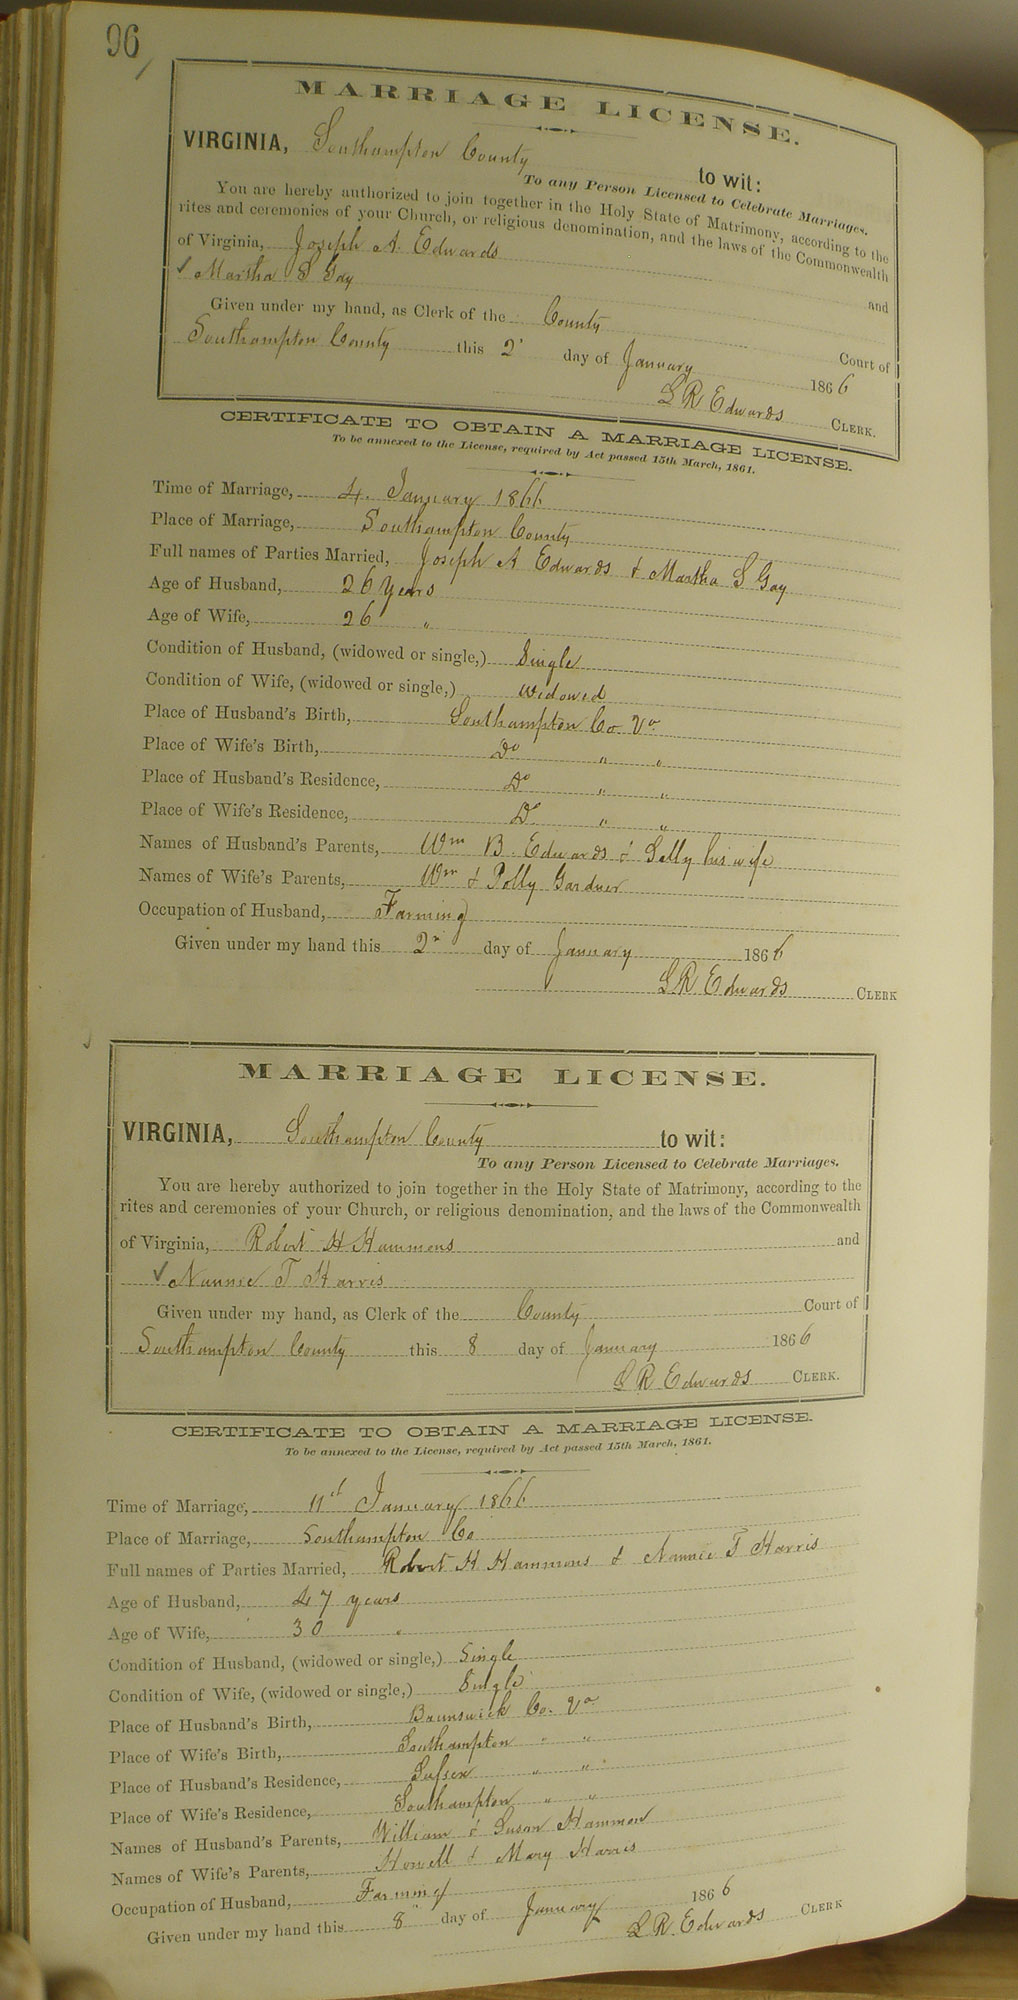 96
MARRIAGE LICENSE.
VIRGINIA, Southampton County to wit:
To any Person Licensed to Celebrate Marriages.
You are hereby authorized to join together in the Holy State of Matrimony, according to the
rites and ceremonies of your Church, or religious denomination, and the laws of the Commonwealth
of Virginia, Joseph A. Edwards and
✓ Martha S Gay
Given under my hand, as Clerk of the County Court of
Southampton County this 2 day of January 1866
L R Edwards CLERK.
CERTIFICATE TO OBTAIN A MARRIAGE LICENSE.
To be annexed to the License, required by Act passed 15th March, 1861.
Time of Marriage, 4. January 1866
Place of Marriage, Southampton County
Full names of Parties Married, Joseph A Edwards & Martha S Gay
Age of Husband, 26 Years
Age of Wife, 26 "
Condition of Husband, (widowed or single,) Single
Condition of Wife, (widowed or single,) widowed
Place of Husband's Birth, Southampton Co Va
Place of Wife's Birth, Do " "
Place of Husband's Residence, Do " "
Place of Wife's Residence, Do " "
Names of Husband's Parents, Wm B. Edwards & Sally his wife
Names of Wife's Parents, Wm & Polly Gardner
Occupation of Husband, Farming
Given under my hand this 2 day of January 1866
L R Edwards CLERK
MARRIAGE LICENSE.
VIRGINIA, Southampton County to wit:
To any Person Licensed to Celebrate Marriages.
You are hereby authorized to join together in the Holy State of Matrimony, according to the
rites and ceremonies of your Church, or religious denomination, and the laws of the Commonwealth
of Virginia, Robert H Hammons and
✓ Nannie T Harris
Given under my hand, as Clerk of the County Court of
Southampton County this 8 day of January 1866
L R Edwards CLERK.
CERTIFICATE TO OBTAIN A MARRIAGE LICENSE.
To be annexed to the License, required by Act passed 15th March, 1861.
Time of Marriage, 11th January 1866
Place of Marriage, Southampton Co
Full names of Parties Married, Robert H Hammons & Nannie T Harris
Age of Husband, 47 years
Age of Wife, 30 "
Condition of Husband, (widowed or single,) Single
Condition of Wife, (widowed or single,) Single
Place of Husband's Birth, Brunswick Co. Va
Place of Wife's Birth, Southampton " "
Place of Husband's Residence, " "
Place of Wife's Residence, Southampton " "
Names of Husband's Parents, William & Susan Hammon
Names of Wife's Parents, Howell & Mary Harris
Occupation of Husband, Farming
Given under my hand this 8 day of January 1866
L R. Edwards CLERK